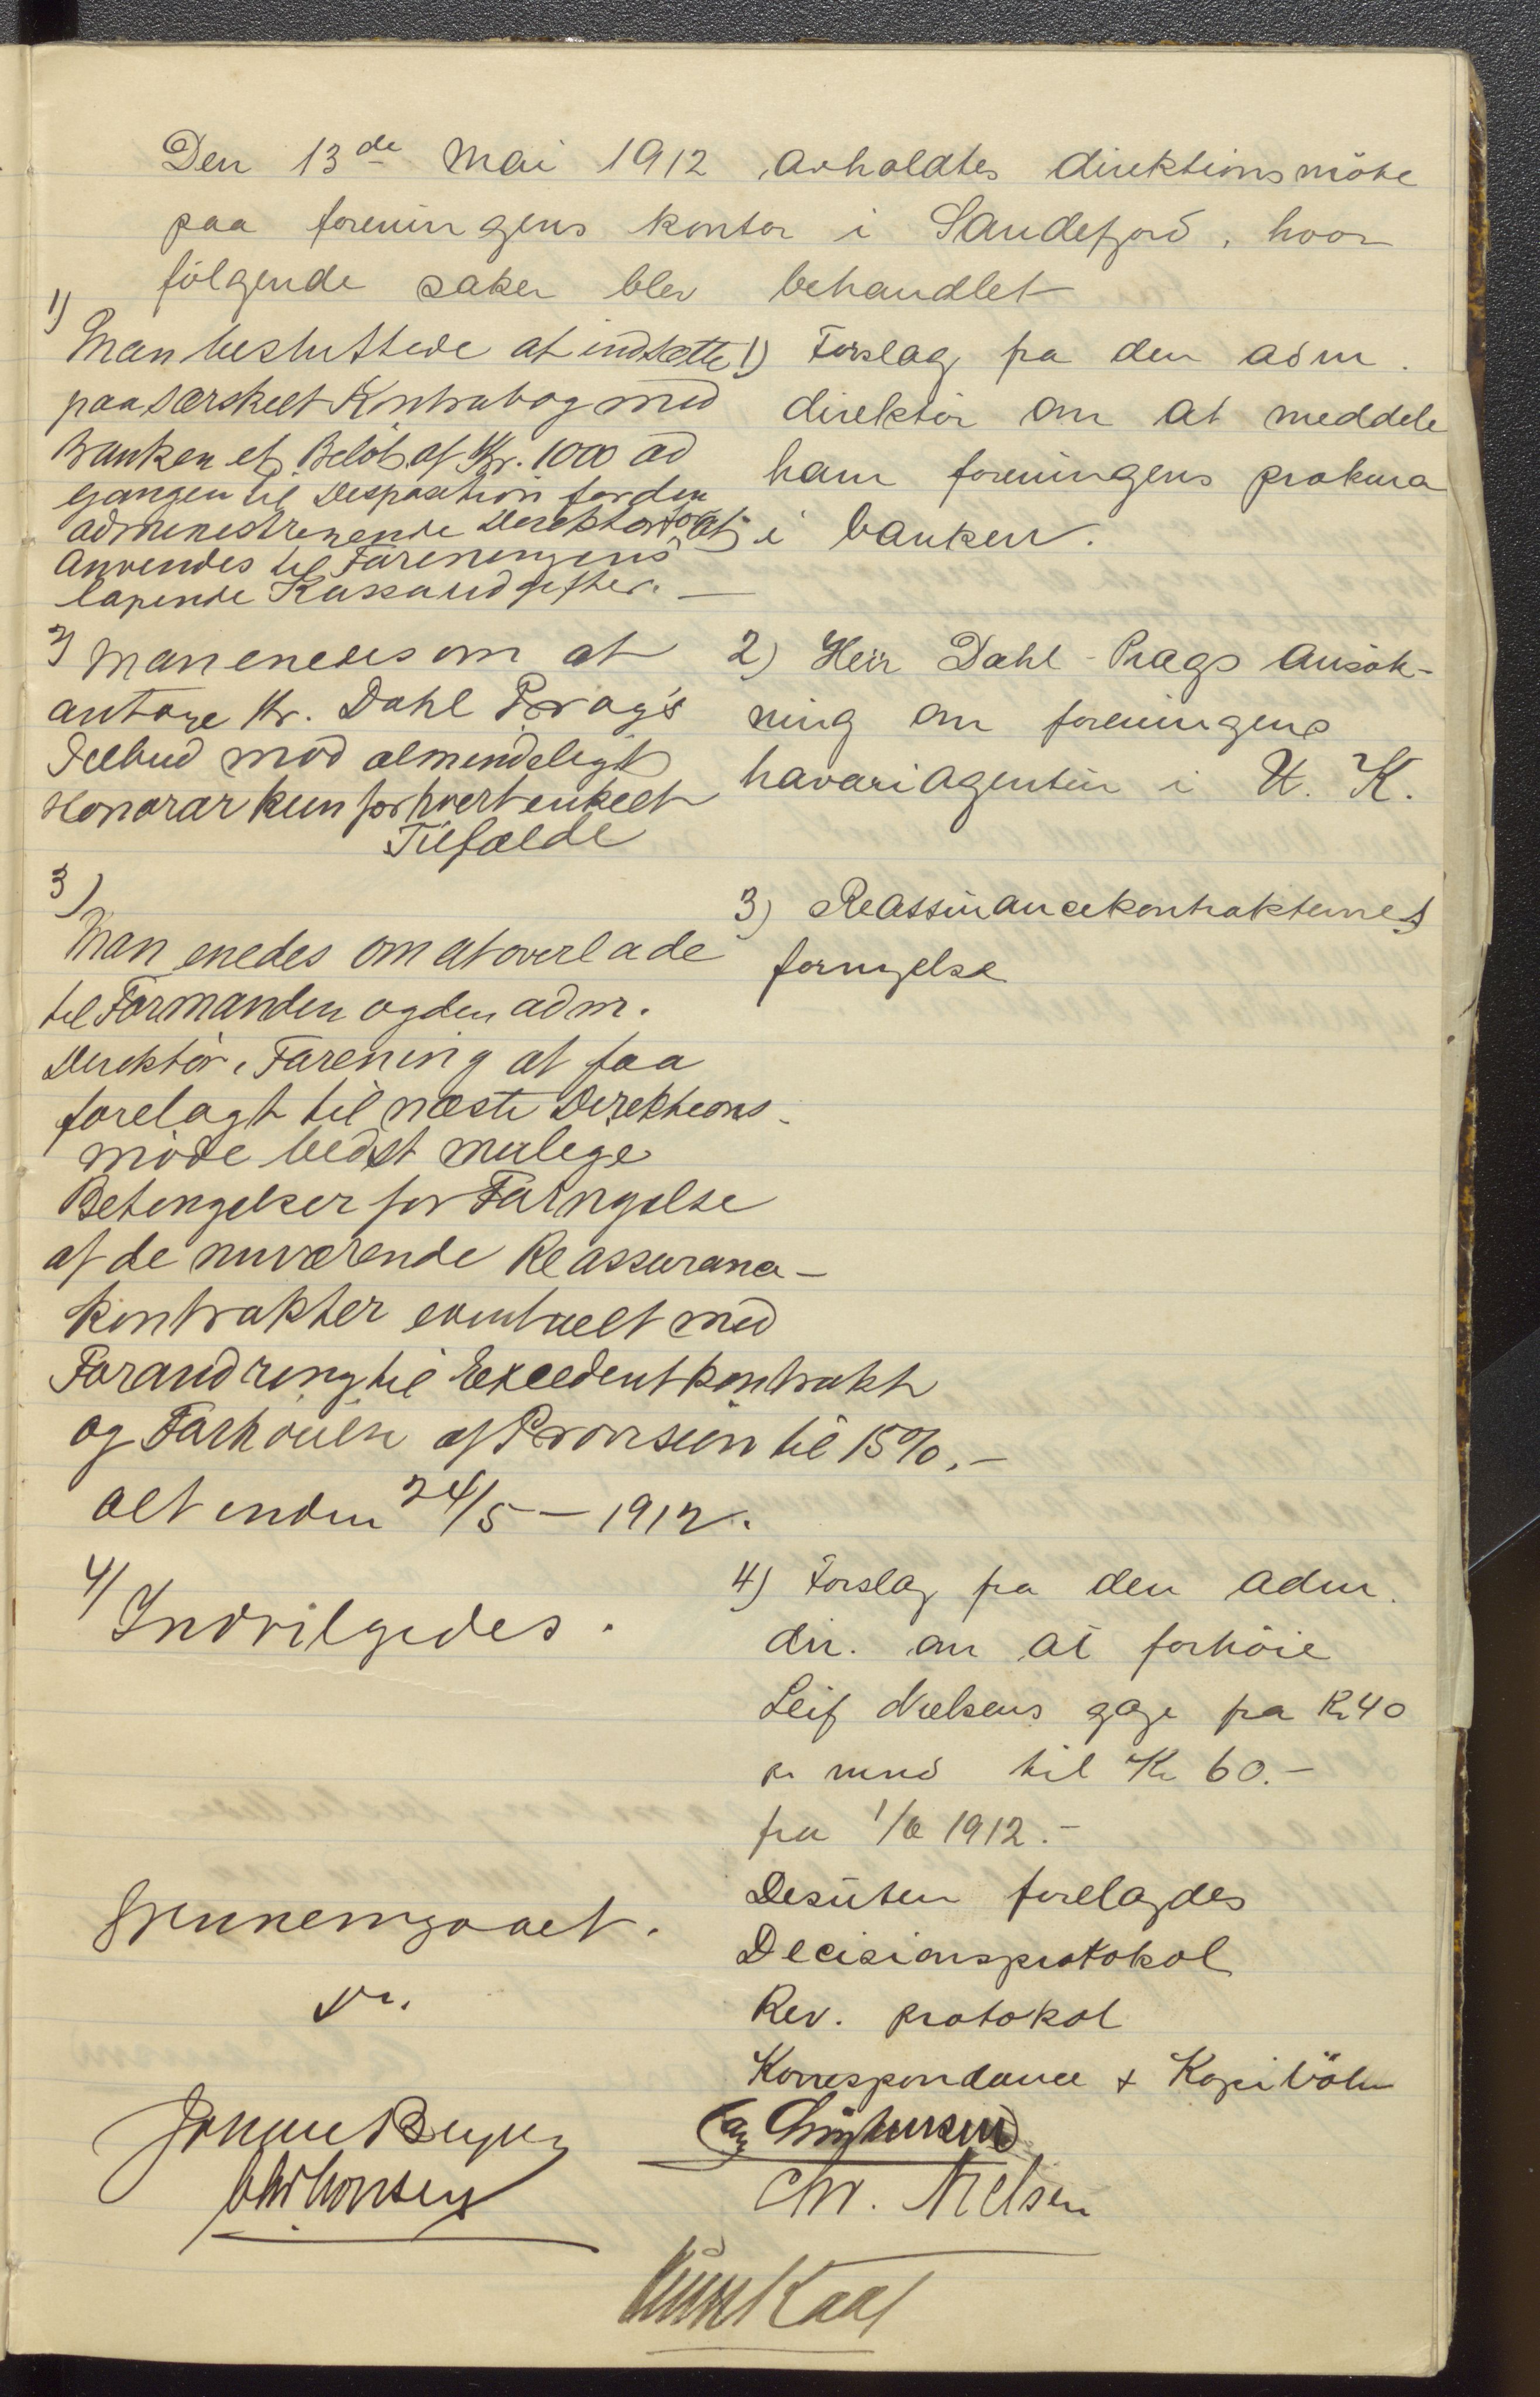 Den 13de Mai 1912 avholdtes direktionsmöte
paa foreningens kontor i Sandefjord, hvor
fölgende saker blev behandlet
1)
Man besluttede at indsætte
paa særskelt Kontrabog med
Banken et Belöb af Kr. 1000 ad
gangen til Disposition for den
administrerende Direktör for at
anvendes til Foreningens
løpende Kassaudgifter. —
1) Forslag fra den adm.
direktör om at meddele
ham foreningens prokura
i banken.
2) Man enedes om at
antage Hr. Dahl Prag's
Tilbud mod almindeligt
Honorar kun for hvert enkelt
Tilfælde
2) Herr Dahl-Prags Ansök-
ning om foreningens
havariagentur i U. K.
3)
Man enedes om at overlade
til Formanden og den adm.
Direktör i Forening at faa
forelagt til næste Direktions-
møde bedst mulige
Betingelser for Fornyelse
af de nuværende Reassurance-
kontrakter eventuelt med
Forandring til Excedentkontrakt
og Forhöielse af Provision til 15%.-
alt inden 24/5 - 1912.
3) Reassurancekontrakternes
fornyelse
4/ Indvilgedes.
4) Forslag fra den adm.
dir. om at forhöie
Leif Nielsens gage fra Kr 40
pr mnd til Kr 60.-
fra 1912.-
Gjennemgaaet.
Desuten forelagdes
Decisionsprotokol
Rev. protokol
Korrespondance + Kopiböker
Johan Bryde
Christensen
Chr. Nielsen